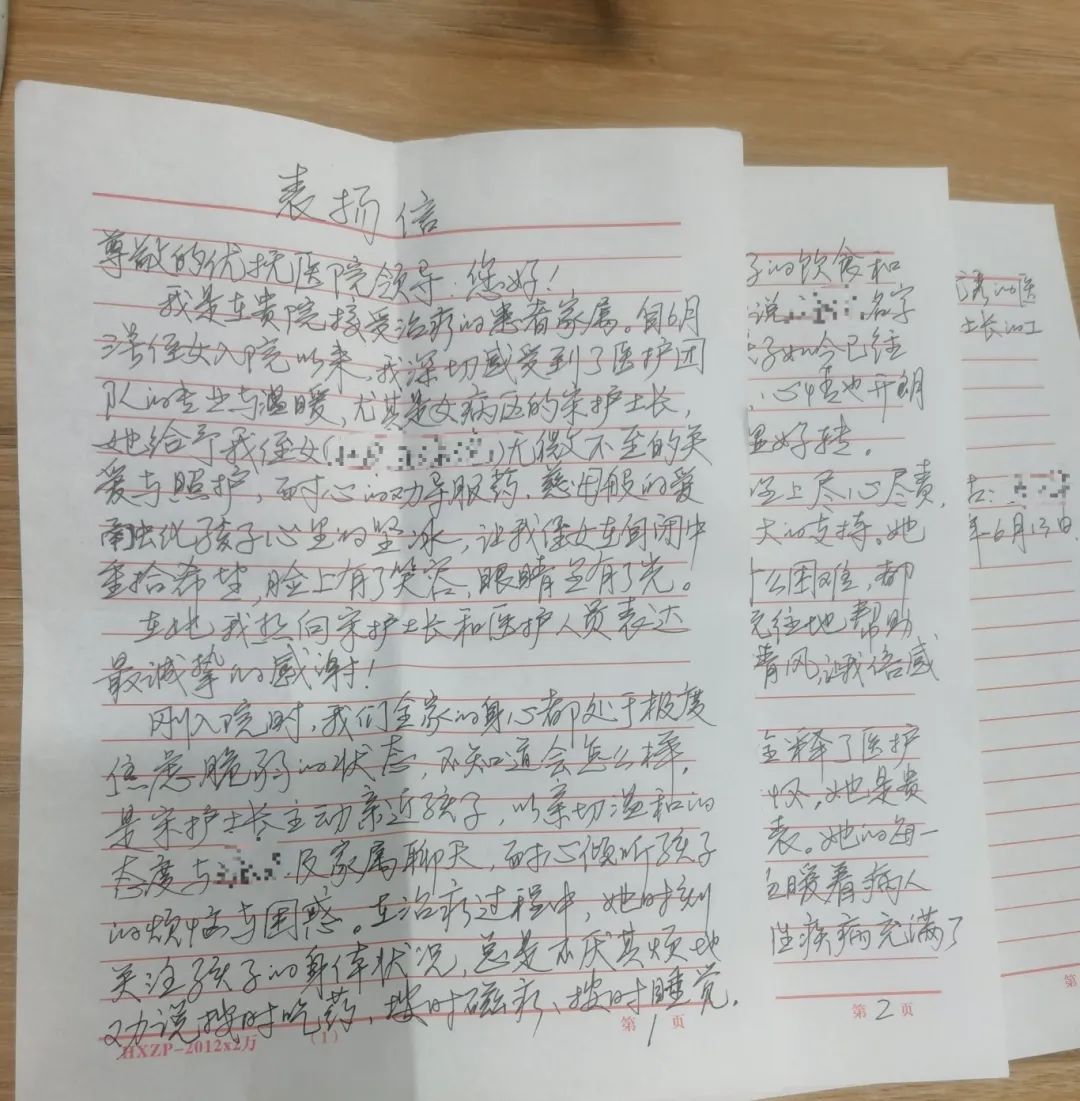 表扬信
尊敬的优抚医院领导：您好！
我是在贵院接受治疗的患者家属。自6月
侄女入院以来，我深切感受到了医护团
队的专业与温暖，尤其是女病区的宋护士长，
她给予我侄女（）无微不至的关
爱与照护，耐心的劝导服药，慈母般的爱
融化孩子心里的坚冰，让我侄女在自闭中
重拾希望，脸上有了笑容，眼睛里有了光。
在此我想向宋护士长和医护人员表达
最诚挚的感谢！
刚入院时，我们全家的身心都处于极度
焦急脆弱的状态，不知道会怎么样，
是宋护士长主动亲近孩子，以亲切温和的
态度与及家属聊天，耐心倾听孩子
的烦恼与困惑。在治疗过程中，她时刻
关注孩子的身体状况，总是不厌其烦地
劝说按时吃药、按时磁疗、按时睡觉，
HXZP-2012x2万 （1） 第1页
子的饮食和
说名字
孩子如今已经
，心情也开朗
显好转。
上尽心尽责，
大的支持。她
什么困难，都
地帮助
清风，让我倍感
诠释了医护
她是贵
表。她的每一
暖着病人
性疾病充满了
第2页
的医
士长的工
年6月13日
第